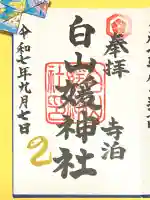 奉拝
寺泊
白山媛神社
令和七年九月七日